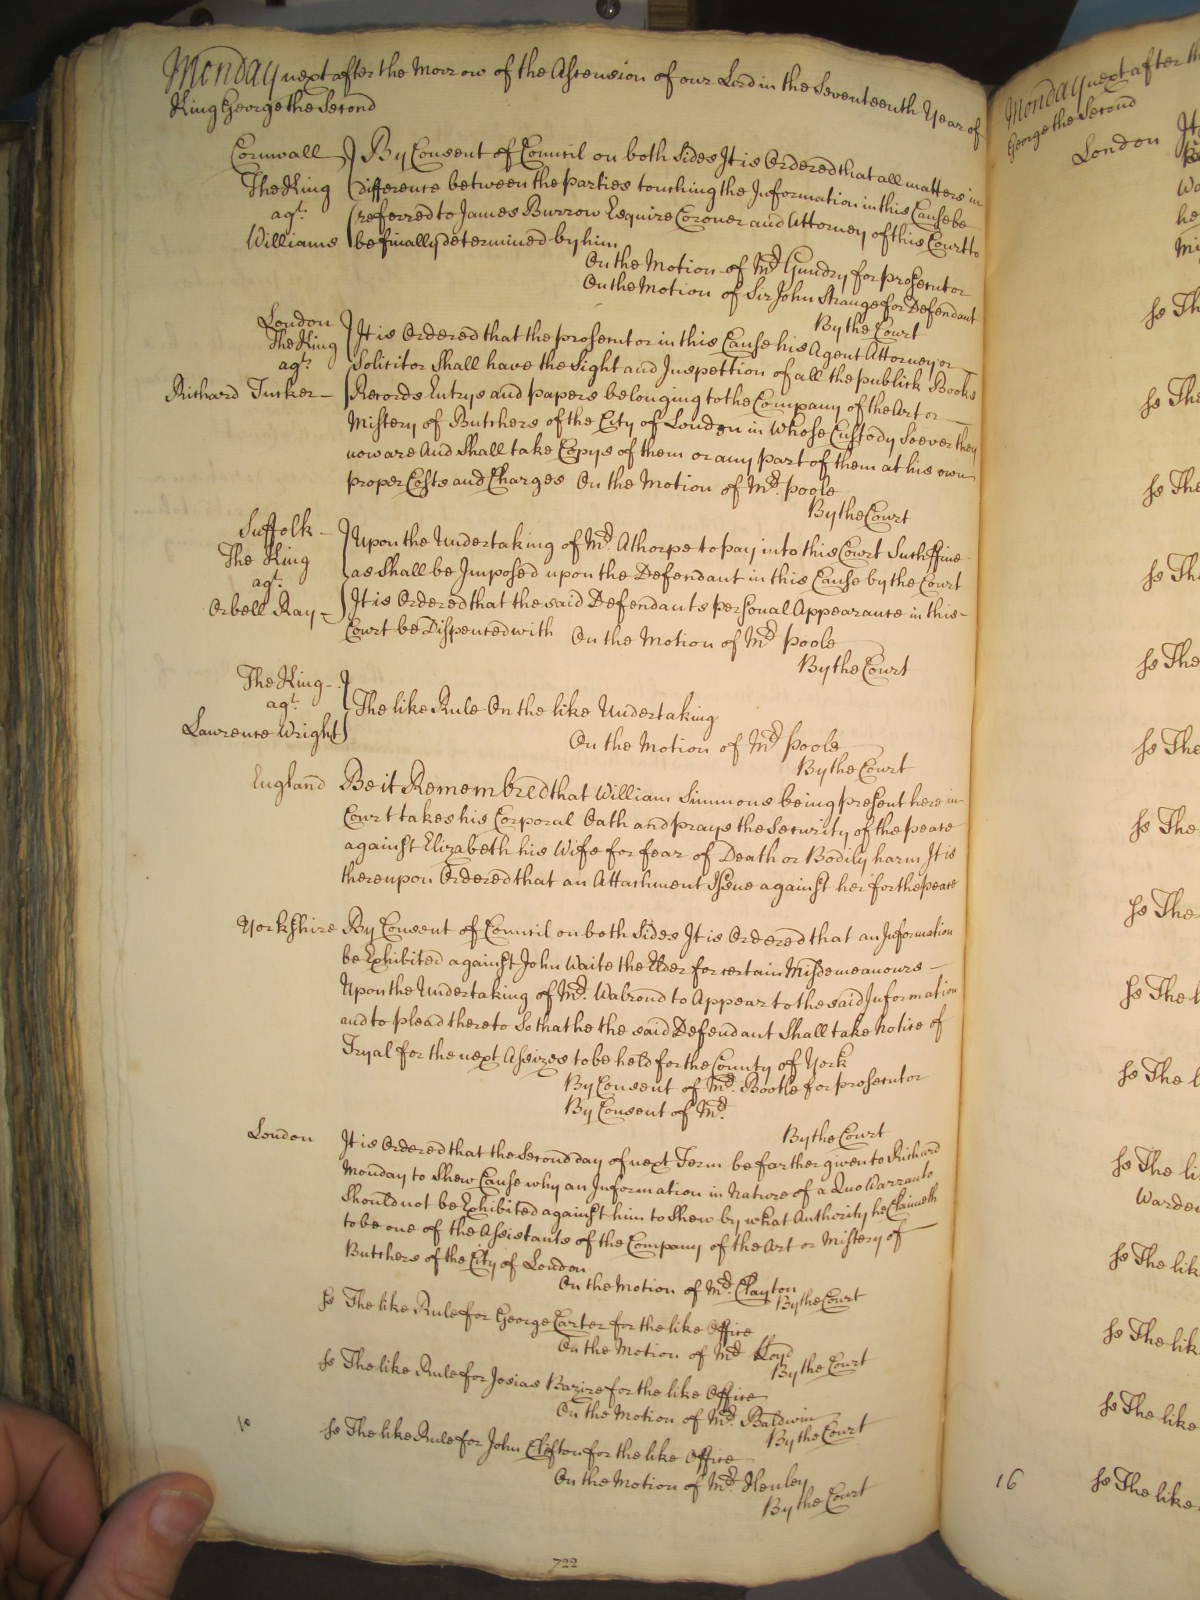 Monday next after the Morrow of the Ascension of our Lord in the Seventeenth Year of
King George the Second
Cornwall
The King
agt.
Williams
By Consent of Council on both Sides It is Ordered that all matters in
difference between the parties touching the Information in this Cause be
referred to James Burrow Esquire Coroner and Attorney of this Court to
be finally determined by him
On the Motion of Mr. Gundry for prosecutor
On the Motion of Sir John Strange for Defendant
By the Court
London
The King
agt.
Richard Tucker
It is Ordered that the prosecutor in this Cause his Agent Attorney or
Solicitor Shall have the Sight and Inspection of all the publick Books
Records Entrys and papers belonging to the Company of the Art or
Mistery of Butchers of the City of London in Whose Custody Soever they
now are And Shall take Copys of them or any part of them at his own
proper Costs and Charges On the Motion of Mr. poole
By the Court
Suffolk
The King
agt.
Orbell Ray
Upon the Undertaking of Mr. Athorpe to pay into this Court Such ffine
as Shall be Imposed upon the Defendant in this Cause by the Court
It is Ordered that the said Defendants personal Appearance in this
Court be Dispenced with On the Motion of Mr. poole
By the Court
The King
agt.
Lawrence Wright
The like Rule On the like Undertaking
On the Motion of Mr. poole
By the Court
England Be it Remembred that William Simmons being present here in
Court takes his Corporal Oath and prays the Security of the peace
against Elizabeth his Wife for fear of Death or Bodily harm It is
thereupon Ordered that an Attachment Issue against her for the peace
Yorkshire By Consent of Council on both Sides It is Ordered that an Information
be Exhibited against John Waite the Elder for certain Misdemeanours
Upon the Undertaking of Mr. Walrond to Appear to the said Information
and to plead thereto So that he the said Defendant Shall take Notice of
Tryal for the next Assizes to be held for the County of York
By Consent of Mr. Bootle for prosecutor
By Consent of Mr.
By the Court
London It is Ordered that the Second day of next Term be farther given to Richard
Monday to Shew Cause why an Information in Nature of a Quo Warranto
Should not be Exhibited against him to Shew by what Authority he Claimeth
to be one of the Assistants of the Company of the Art or Mistery of
Butchers of the City of London
On the Motion of Mr. Clayton
By the Court
ss The like Rule for George Carter for the like Office
On the Motion of Mr. Lloyd
By the Court
ss The like Rule for Josias Bazire for the like Office
On the Motion of Mr. Baldwin
By the Court
ss The like Rule for John Clifton for the like Office
On the Motion of Mr. Henley
By the Court
722
Monday next after th
George the Second
London
It
he
ss Th
ss The
ss The
ss The
ss The
ss The
ss The
ss The
ss The l
ss The l
ss The li
Warden
ss The lik
ss The lik
ss The like
16 ss The like